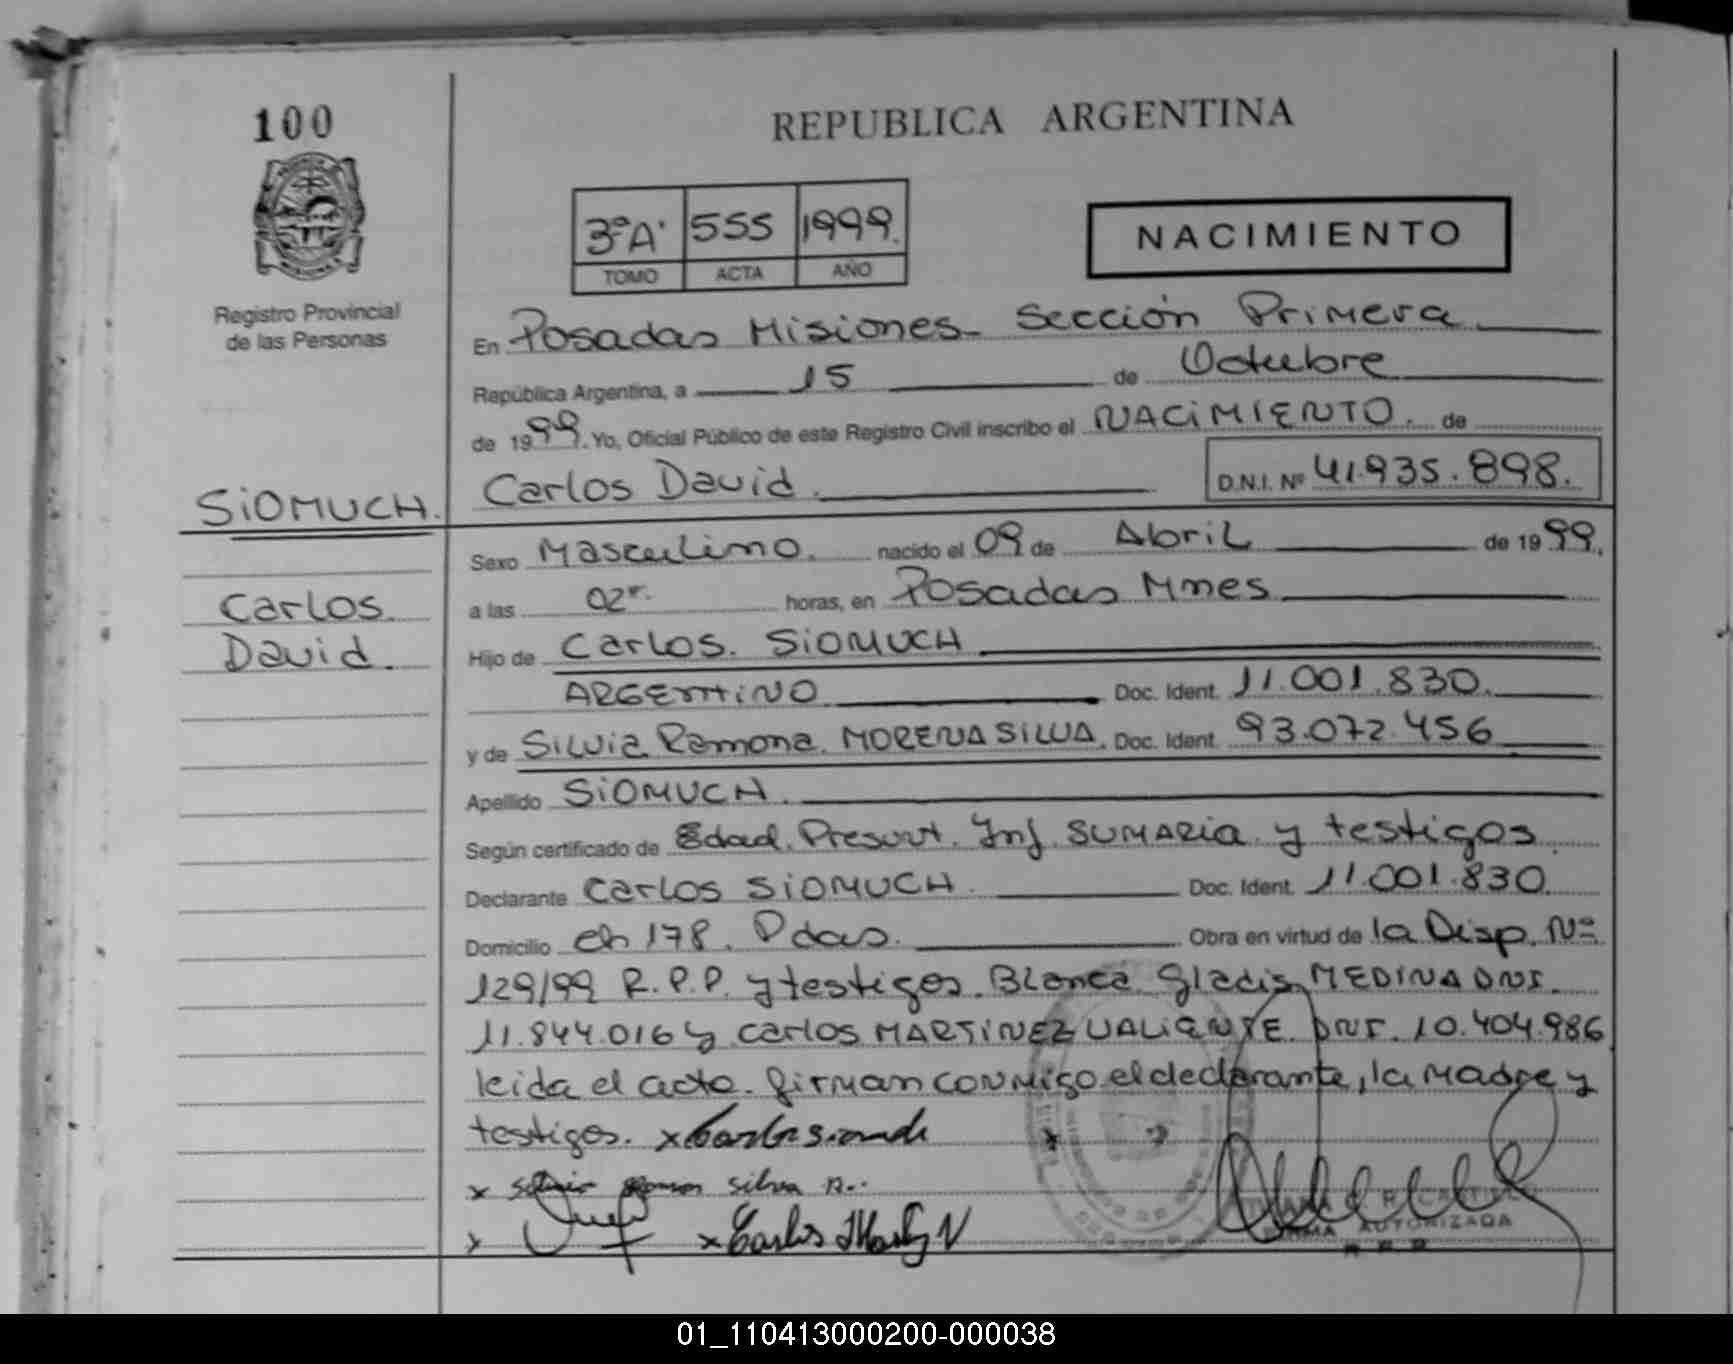 100
REPUBLICA ARGENTINA
3ºA 555 1999.
TOMO ACTA AÑO
NACIMIENTO
Registro Provincial
de las Personas
En Posadas Misiones - Sección Primera
República Argentina, a 15 de Octubre
de 1999. Yo, Oficial Público de este Registro Civil inscribo el NACIMIENTO. de
SIOMUCH. Carlos David. D.N.I. Nº 41.935.898.
Sexo Masculino. nacido el 09 de Abril de 1999.
Carlos a las 02 horas, en Posadas Mnes
David. Hijo de Carlos. SIOMUCH
ARGENTINO Doc. Ident. 11.001.830.
y de Silvia Ramona. MORENA SILVA. Doc. Ident. 93.072.456
Apellido SIOMUCH.
Según certificado de Edad. Presunt. Inf. SUMARIA y testigos.
Declarante Carlos SIOMUCH. Doc. Ident. 11.001.830.
Domicilio Ch 178. Pdas. Obra en virtud de la Disp. Nº
129/99 R.P.P. y testigos. Blanca Gladis MEDINA DNI.
11.844.016 y Carlos MARTINEZ VALIENTE. DNI. 10.404.986
leida el acta. firman conmigo el declarante, la Madre y
testigos. x
x silva
x x Carlos
FIRMA AUTORIZADA
01_110413000200-000038